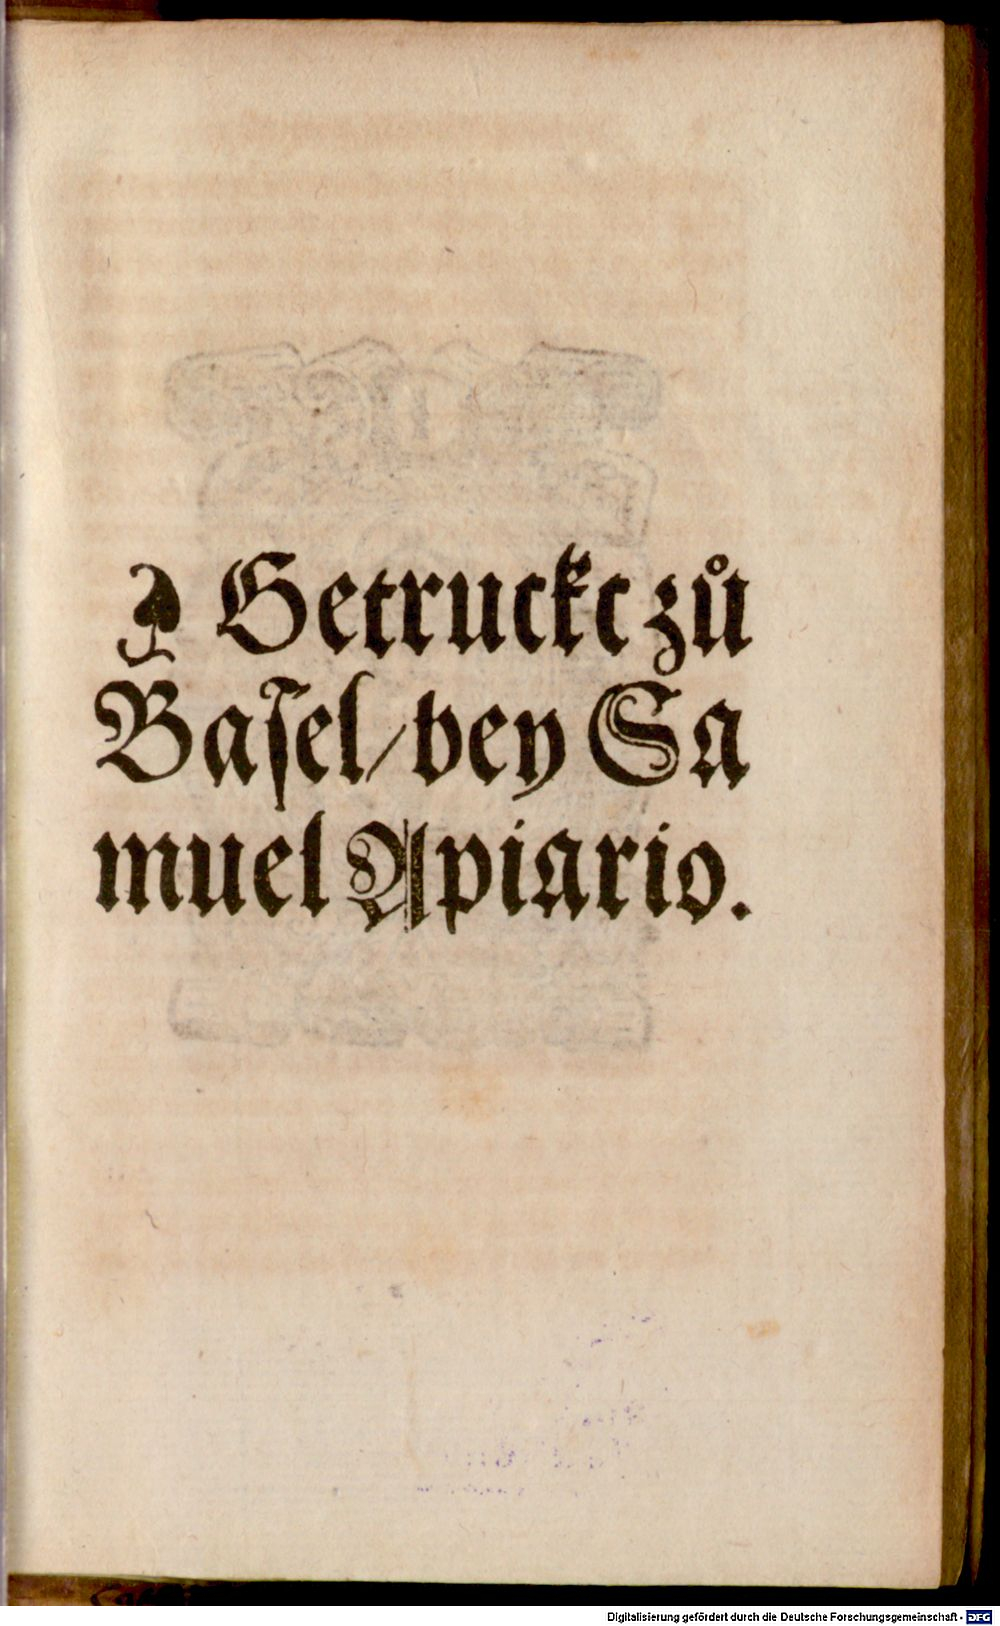 ❧ Getruckt zů
Basel/ bey Sa
muel Apiario.
Digitalisierung gefördert durch die Deutsche Forschungsgemeinschaft - DFG